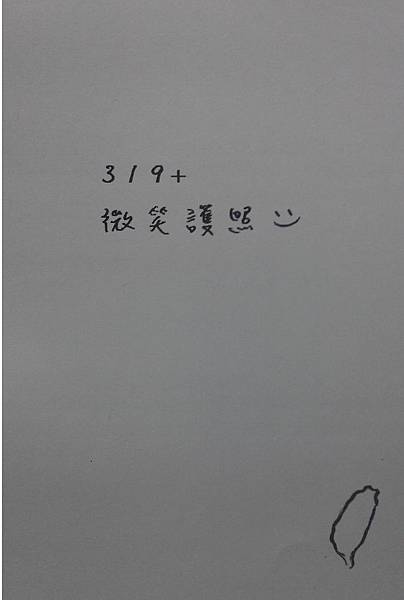 319+
微笑護照